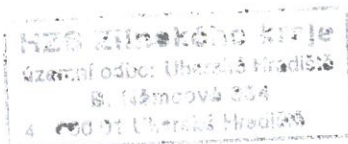 HZS Zlínského kraje
územní odbor Uherské Hradiště
B. Němcové 834
4 686 01 Uherské Hradiště